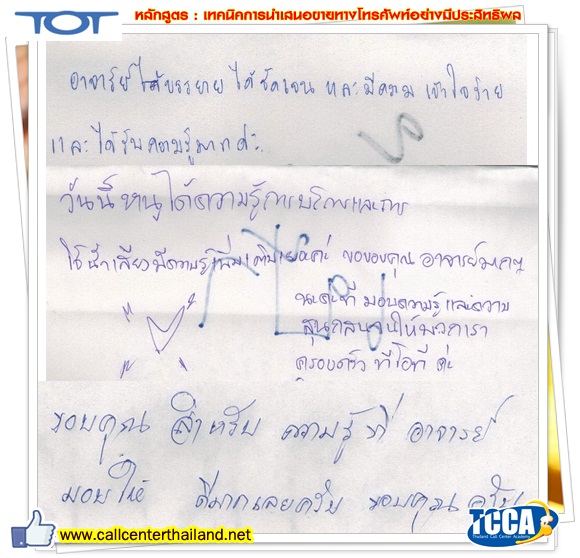 TOT
หลักสูตร : เทคนิคการนำเสนอขายทางโทรศัพท์อย่างมีประสิทธิผล
อาจารย์ได้บรรยาย ได้ชัดเจน และมีความ เข้าใจง่าย
และได้รับความรู้มากค่ะ.
วันนี้หนูได้ความรู้การบริการและการ
ใช้น้ำเสียงมีความรู้เพิ่มเติมเยอะค่ะ ขอขอบคุณ อาจารย์มากๆ
นะคะที่ มอบความรู้ และความ
สนุกสนานให้
ครอบครัว ทีโอที ค่ะ
ขอบคุณ สำหรับ ความรู้ ที่ อาจารย์
มอบให้ ดีมากเลยครับ ขอบคุณ ครับ
www.callcenterthailand.net
TCCA
Thailand Call Center Academy